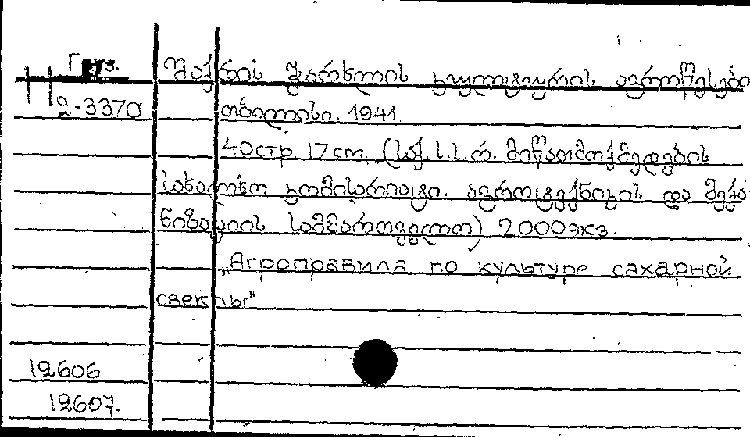 შაქრის ჭარხლის კულტურის აგროწესები
2-3370 თბილისი. 1941.
40стр 17см. (საქ. ს.ს.რ. მიწათმოქმედების
სახალხო კომისარიატი. აგროტექნიკის და მექა
ნიზაციის სამმართველო) 2000экз.
„Агроправила по культуре сахарной
свеклы"
12606
12607.